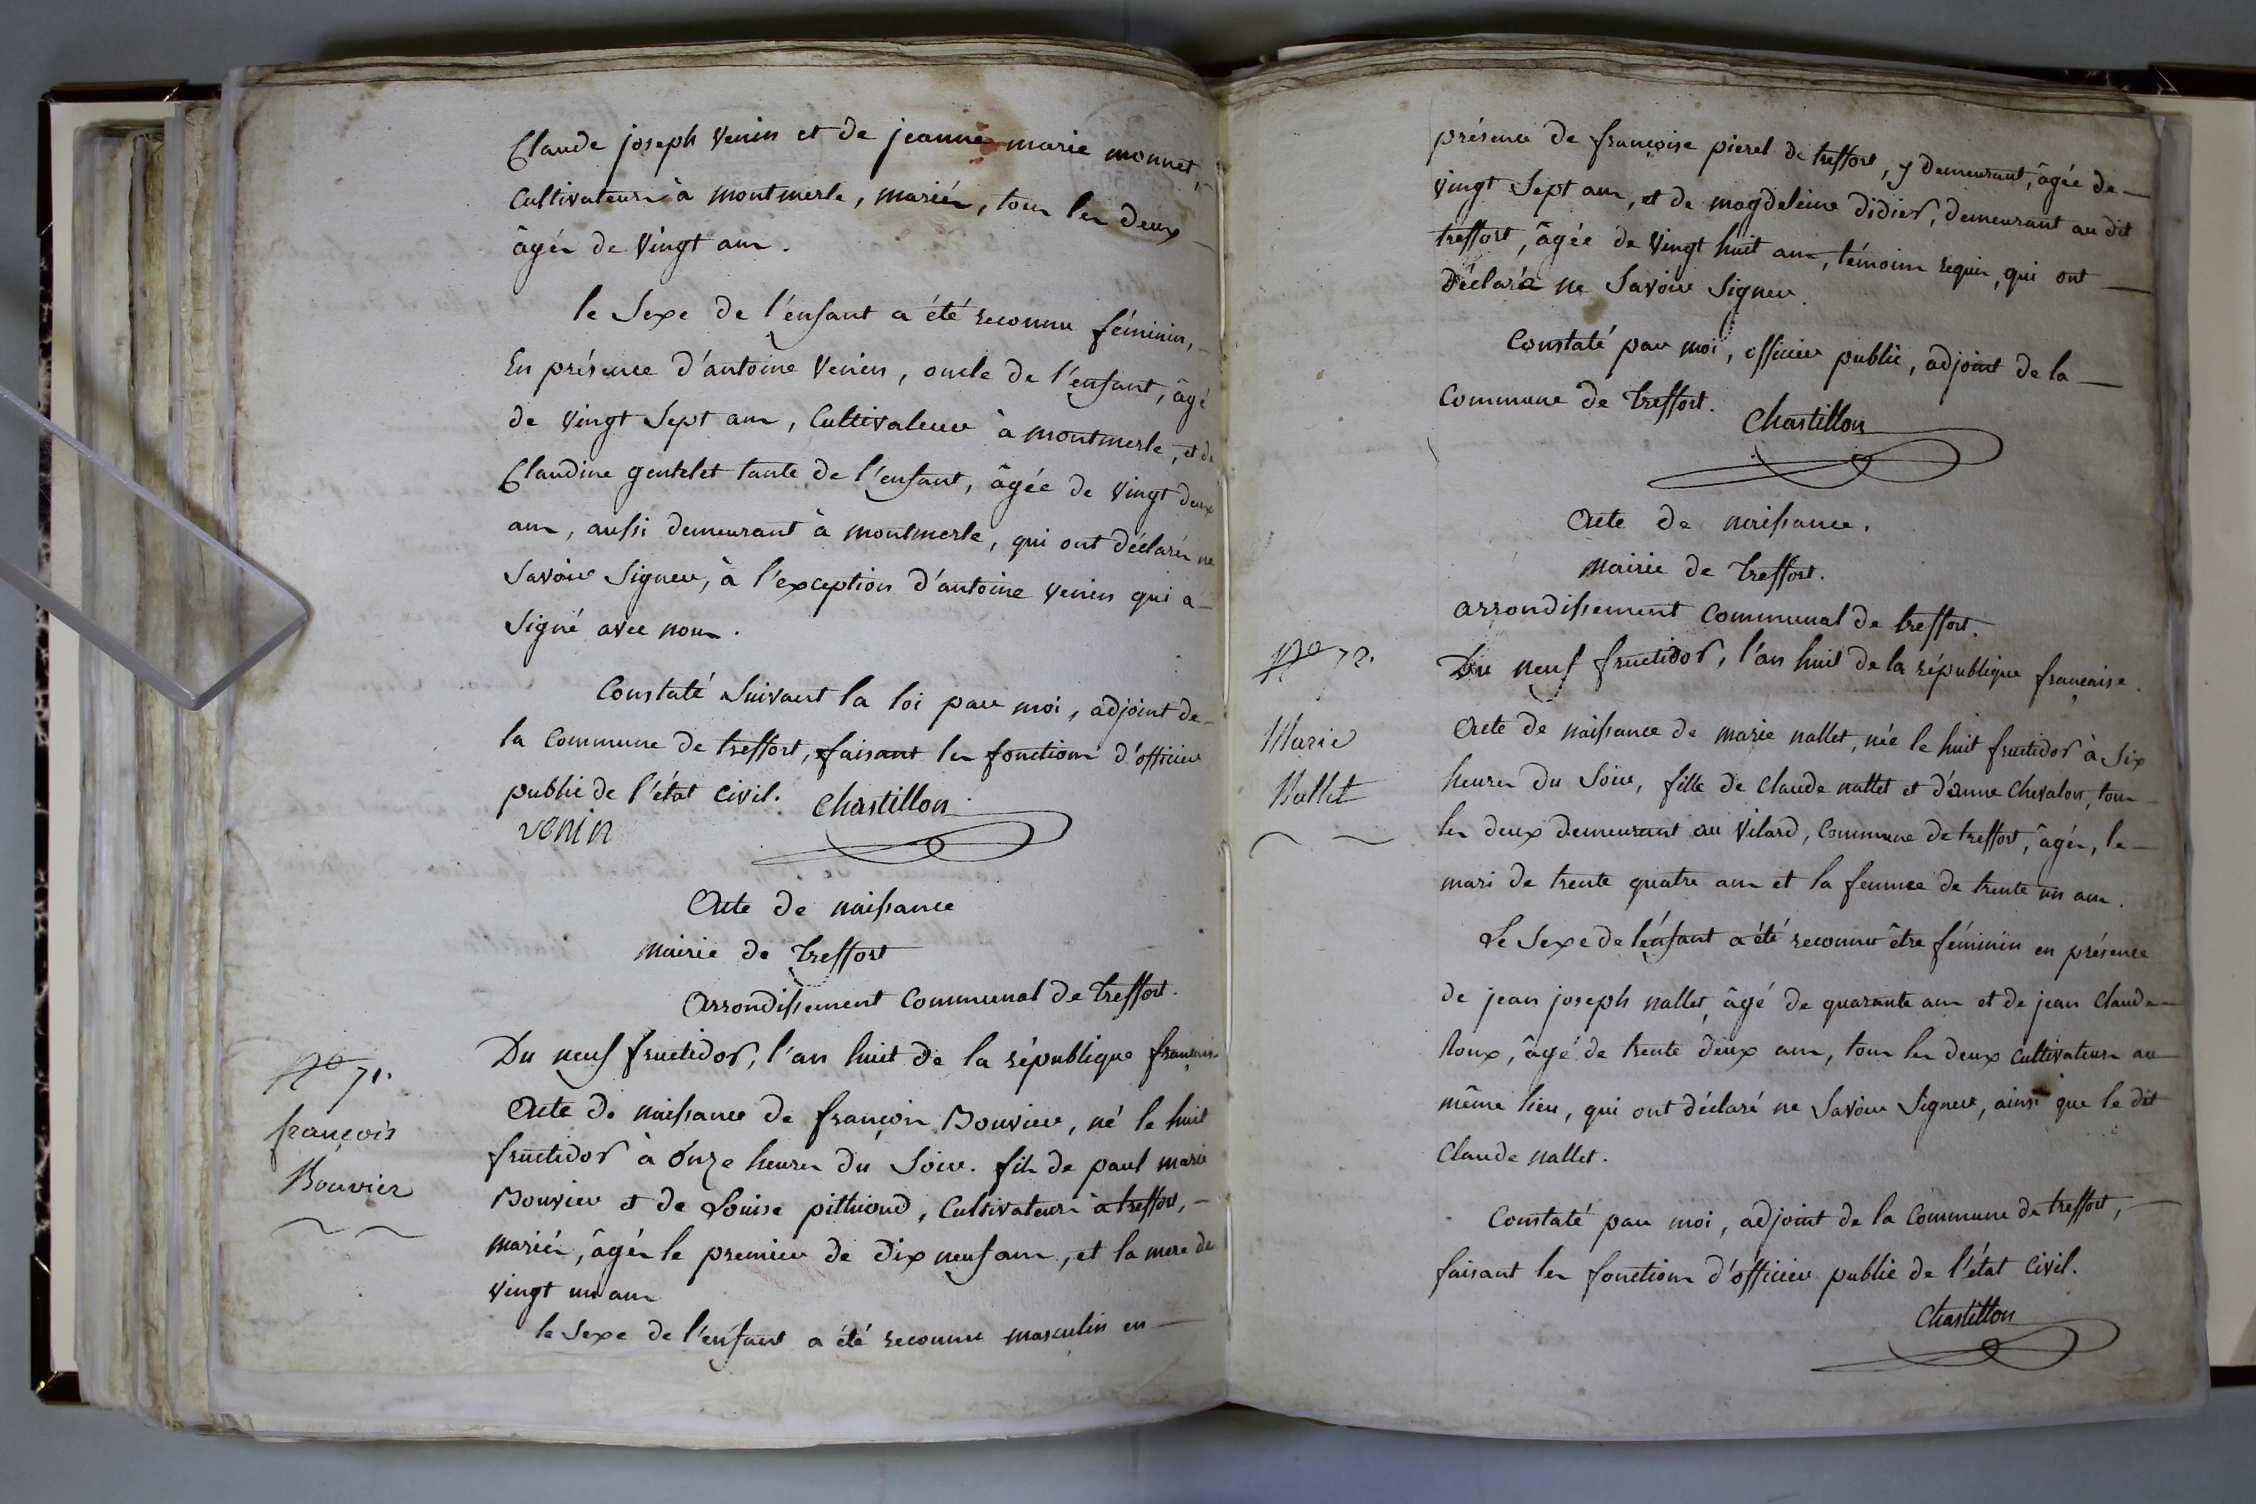 Claude joseph Venin et de jeanne marie monnet,
Cultivateurs à montmerle, mariés, tous les deux
âgés de Vingt ans.
le Sexe de l'énfant a été reconnu féminin,
En présence d'antoine Venin, oncle de l'enfant, âgé
de Vingt Sept ans, Cultivateur à montmerle, et de
Claudine gentelet tante de l'enfant, âgée de Vingt deux
ans, aussi demeurant à montmerle, qui ont déclarés ne
Savoir Signer, à l'exception d'antoine Venin qui a
Signé avec nous.
Constaté Suivant la loi par moi, adjoint de
la Commune de treffort, faisant les fonctions d'officier
public de l'état Civil. Chastillon
venin
Acte de naissance
Mairie de Treffort
Arrondissement Communal de Treffort.
Du neuf fructidor, l'an huit de la république française
N° 71.
françois
Bouvier
Acte de naissance de françois Bouvier, né le huit
fructidor à ónze heures du Soir. fils de paul marie
Bouvier et de Louise pithiond, Cultivateurs à treffort,
mariés, âgés le premier de dix neuf ans, et la mere de
Vingt un ans
le Sexe de l'enfant a été reconnu masculin en
présence de françoise pierel de treffort, y demeurant, âgée de
Vingt Sept ans, et de magdeleine didier, demeurant au dit
treffort, âgée de Vingt huit ans, témoins requis, qui ont
déclaré ne Savoir Signer.
Constaté par moi, officier public, adjoint de la
Commune de Treffort. Chastillon
Acte de naissance.
Mairie de Treffort.
arrondissement Communal de treffort.
N° 72.
Marie
Nallet
Du neuf fructidor, l'an huit de la république française.
Acte de naissance de marie nallet, née le huit fructidor à Six
heures du Soir, fille de Claude nallet et d'anne Chevalon, tous
les deux demeurant au Vilard, Commune de treffort, âgés, le
mari de trente quatre ans et la femme de trente un ans.
Le Sexe de l'énfant a été reconnu être féminin en présence
de jean joseph nallet, âgé de quarante ans et de jean Claude
Roux, âgé de trente deux ans, tous les deux Cultivateurs au
même lieu, qui ont déclaré ne Savoir Signer, ainsi que le dit
Claude nallet.
Constaté par moi, adjoint de la Commune de treffort,
faisant les fonctions d'officier public de l'état Civil.
Chastillon